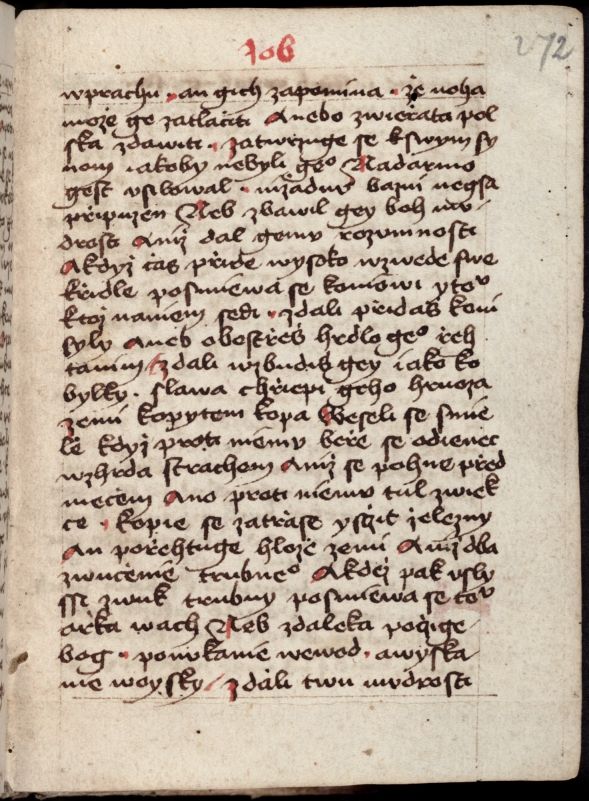 Job
272
wprachu · an gich zapomina · že noha
mozie ge zatlačiti Anebo zwierata pol
ska zdawiti · zatwrzuge se kswym sy
nom iakoby nebyli geo Nadarmo
gest vsilowal · nižadnu bazni negsa
připuzen Neb zbawil gey boh mu
drosti Aniž dal gemu rozumnosti
Akdyž čas přide wysoko wzwede swe
křidle posmiewa se koniowi ytov
ktož naniem sedi · zdali přidaš koni
syly Aneb obostřeš hrdlo geo řeh
tanim / zdali wzbudiš gey iako ko
bylky · slawa chřiepi geho hruoza
zemi kopytem kopa Weseli se smie
le když proti niemu beře se odienec
wzhrda strachem Aniž se pohne před
mečem Ano proti niemu tul zwiek
ce · kopie se zatřase yščit železny
An pořehtuge hlože zemi Aniž dba
zwučenie trubneo Akdež pak vsly
ssi zwuk trubny posmiewa se tov
arka wach Neb zdaleka počige
bog · ponukanie wewod · awyska
nie woysky / zdali twu mudrosti